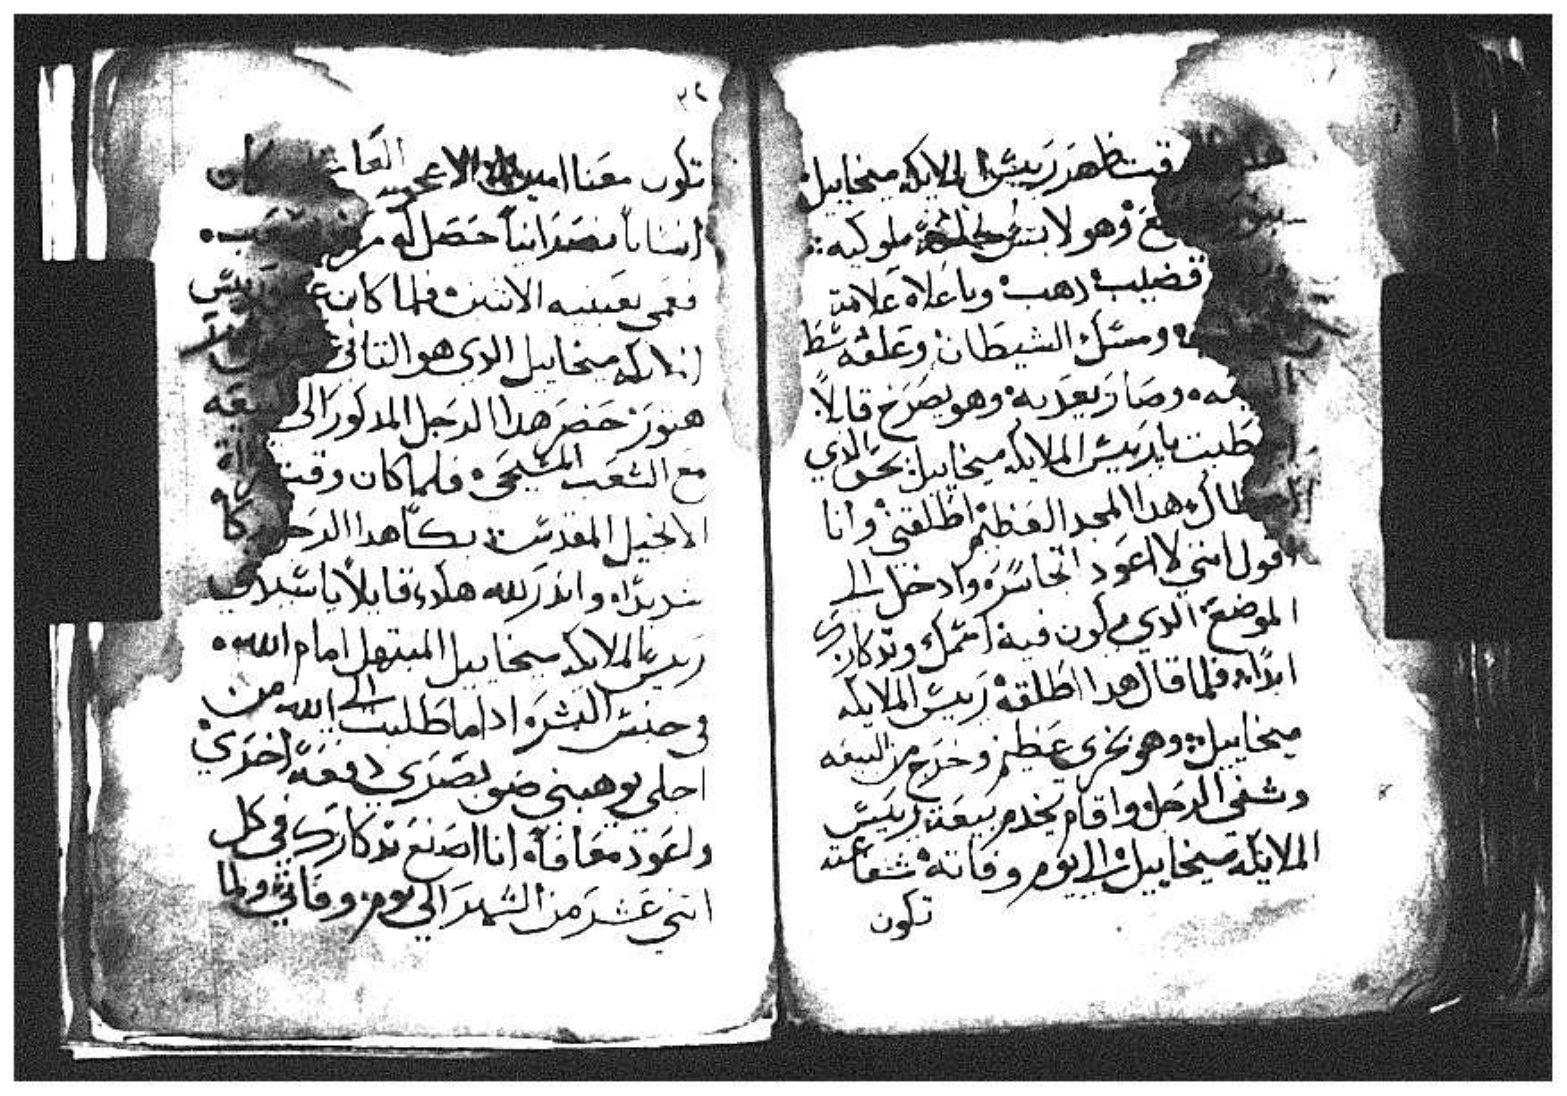 قت ظهر رييس الملايكه ميخاييل
ع وهو لابس حله ملوكيه
قضيب دهب وباعلاه علامة
ومسك الشيطان وعلقه
وصار يعدبه وهو يصرخ قايلاً
طيت يا رييس الملايكه ميخاييل بحق الدي
هدا المجد العظيم اطلقني وانا
اقول انني لا اعود اتجاسر وادخل الى
الموضع الدي يكون فيه اسمك وتدكارك
ابداً فلما قال هدا اطلقه رييس الملايكه
ميخاييل وهو بخزي عظيم وخرج من البيعه
وشفي الرجل واقام يخدم بيعة رييس
الملايكه ميخاييل الى يوم وفاته شفاعته
تكون
٣٢
تكون معنا امين الاعجوبه كان
انساناً نصرانياً حصل له
فعمي بعينيه الاتنين فلما كان
الملايكه ميخاييل الدي هو التاني
هتور حضر هدا الرجل المدكور الى البيعه
مع الشعب المسيحي فلما كان وقت
الانجيل المقدس بكا هدا
شديداً واندر لله هكدا قايلاً يا سيدي
رييس الملايكه ميخاييل المبتهل امام الله
في جنس البشر ادا ما طلبت الى الله من
اجلي يوهبني ضو بصري دفعة اخري
ولعود معافاً انا اصنع تدكارك في كل
اتني عشر من الشهر الى يوم وفاتي ولما